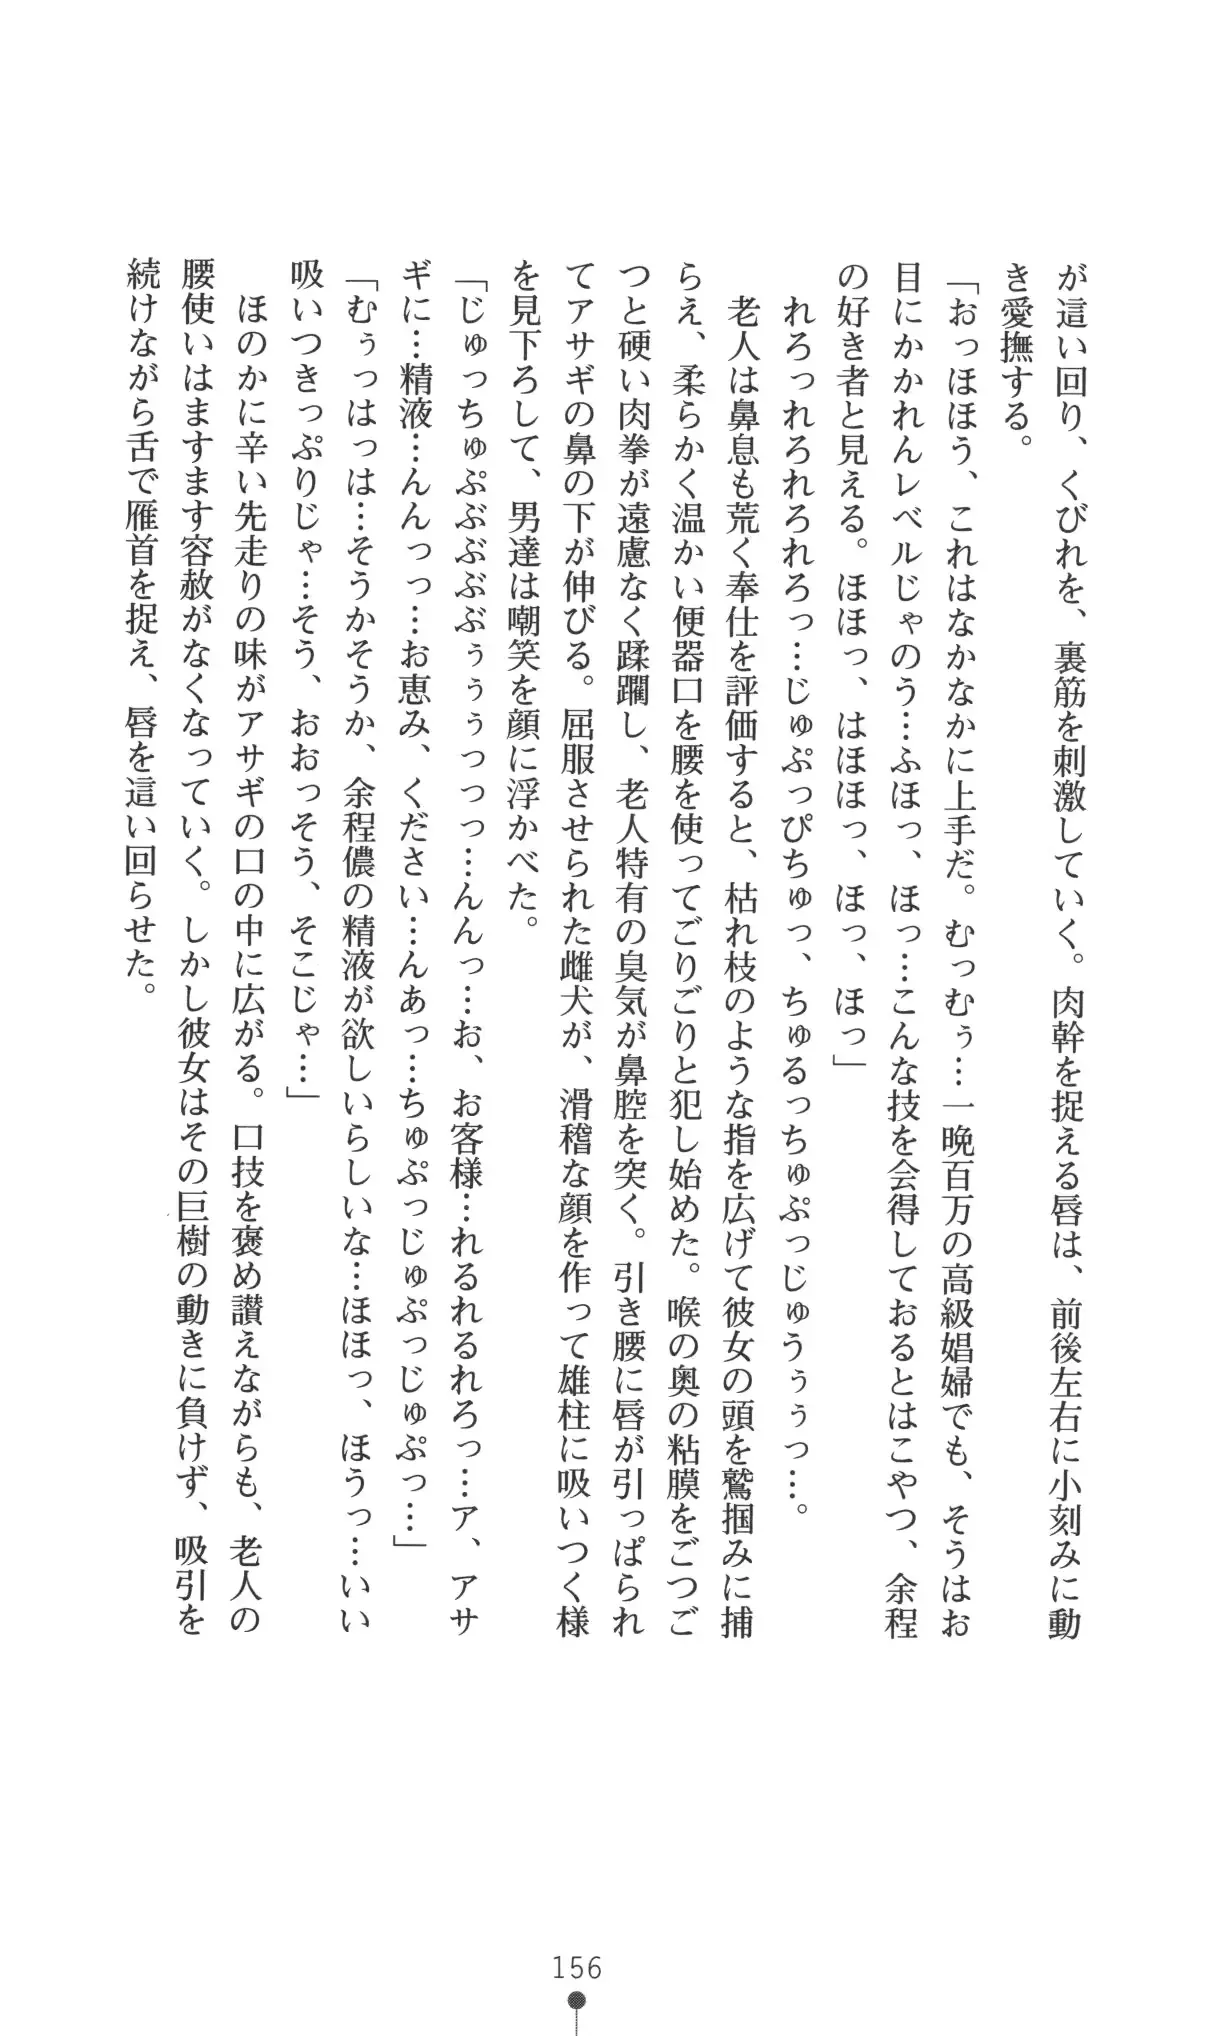 が這い回り、くびれを、裏筋を刺激していく。肉幹を捉える唇は、前後左右に小刻みに動
き愛撫する。
「おっほほう、これはなかなかに上手だ。むっむぅ…一晩百万の高級娼婦でも、そうはお
目にかかれんレベルじゃのう…ふほっ、ほっ…こんな技を会得しておるとはこやつ、余程
の好き者と見える。ほほっ、はほほっ、ほっ、ほっ」
れろっれろれろれろっ…じゅぷっぴちゅっ、ちゅるっちゅぷっじゅうぅぅっ…。
老人は鼻息も荒く奉仕を評価すると、枯れ枝のような指を広げて彼女の頭を鷲掴みに捕
らえ、柔らかく温かい便器口を腰を使ってごりごりと犯し始めた。喉の奥の粘膜をごつご
つと硬い肉拳が遠慮なく蹂躙し、老人特有の臭気が鼻腔を突く。引き腰に唇が引っぱられ
てアサギの鼻の下が伸びる。屈服させられた雌犬が、滑稽な顔を作って雄柱に吸いつく様
を見下ろして、男達は嘲笑を顔に浮かべた。
「じゅっちゅぷぶぶぶぶぅぅぅっっっ…んんっ…お、お客様…れるれるれろっ…ア、アサ
ギに…精液…んんっっ…お恵み、ください…んあっ…ちゅぷっじゅぷっじゅぷっ…」
「むぅっはっは…そうかそうか、余程儂の精液が欲しいらしいな…ほほっ、ほうっ…いい
吸いつきっぷりじゃ…そう、おおっそう、そこじゃ…」
ほのかに辛い先走りの味がアサギの口の中に広がる。口技を褒め讃えながらも、老人の
腰使いはますます容赦がなくなっていく。しかし彼女はその巨樹の動きに負けず、吸引を
続けながら舌で雁首を捉え、唇を這い回らせた。
156